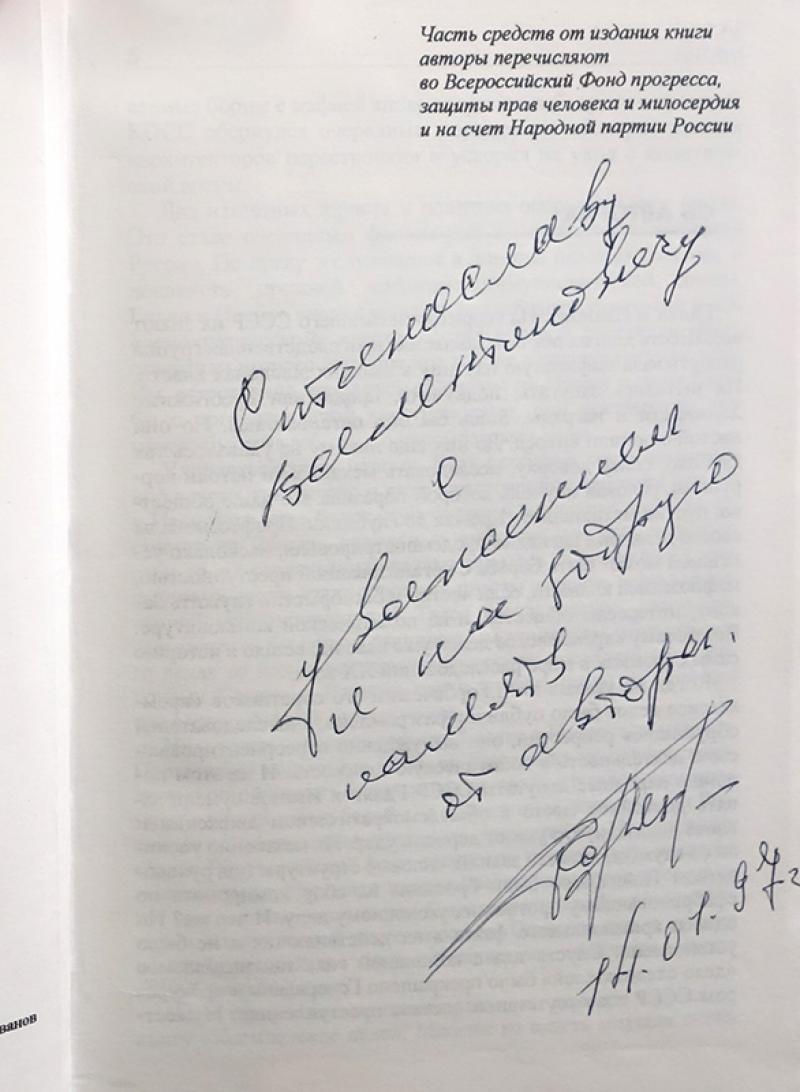 Часть средств от издания книги
авторы перечисляют
во Всероссийский Фонд прогресса,
защиты прав человека и милосердия
и на счет Народной партии России
Станиславу
Валентиновичу
с
уважением
и на добрую
память
от автора.
14.01.97г